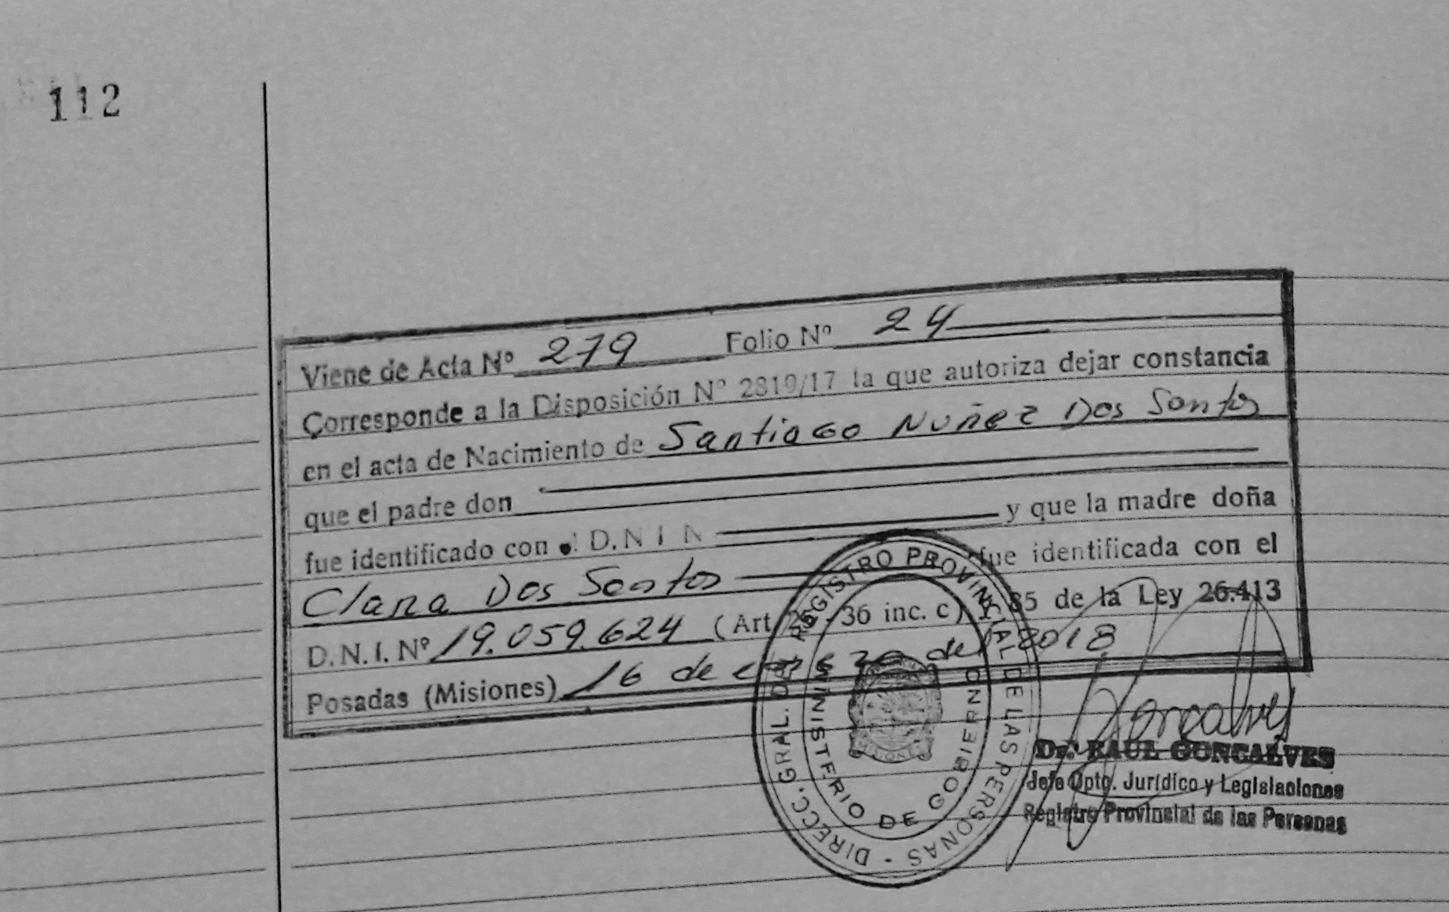 112
Viene de Acta Nº 279 Folio Nº 24
Corresponde a la Disposición Nº 2819/17 la que autoriza dejar constancia
en el acta de Nacimiento de Santiago Nuñez Dos Santos
que el padre don
fue identificado con el D.N I N y que la madre doña
Clara Dos Santos fue identificada con el
D.N.I. Nº 19.059.624 (Art. 36 inc. c) 85 de la Ley 26.413
Posadas (Misiones) 16 de enero del 2018
DIRECC. GRAL. DEL REGISTRO PROVINCIAL DE LAS PERSONAS -
MINISTERIO DE GOBIERNO
MISIONES
Goncalves
Dr. RAUL GONCALVES
Jefe Dpto. Jurídico y Legislaciones
Registro Provincial de las Personas